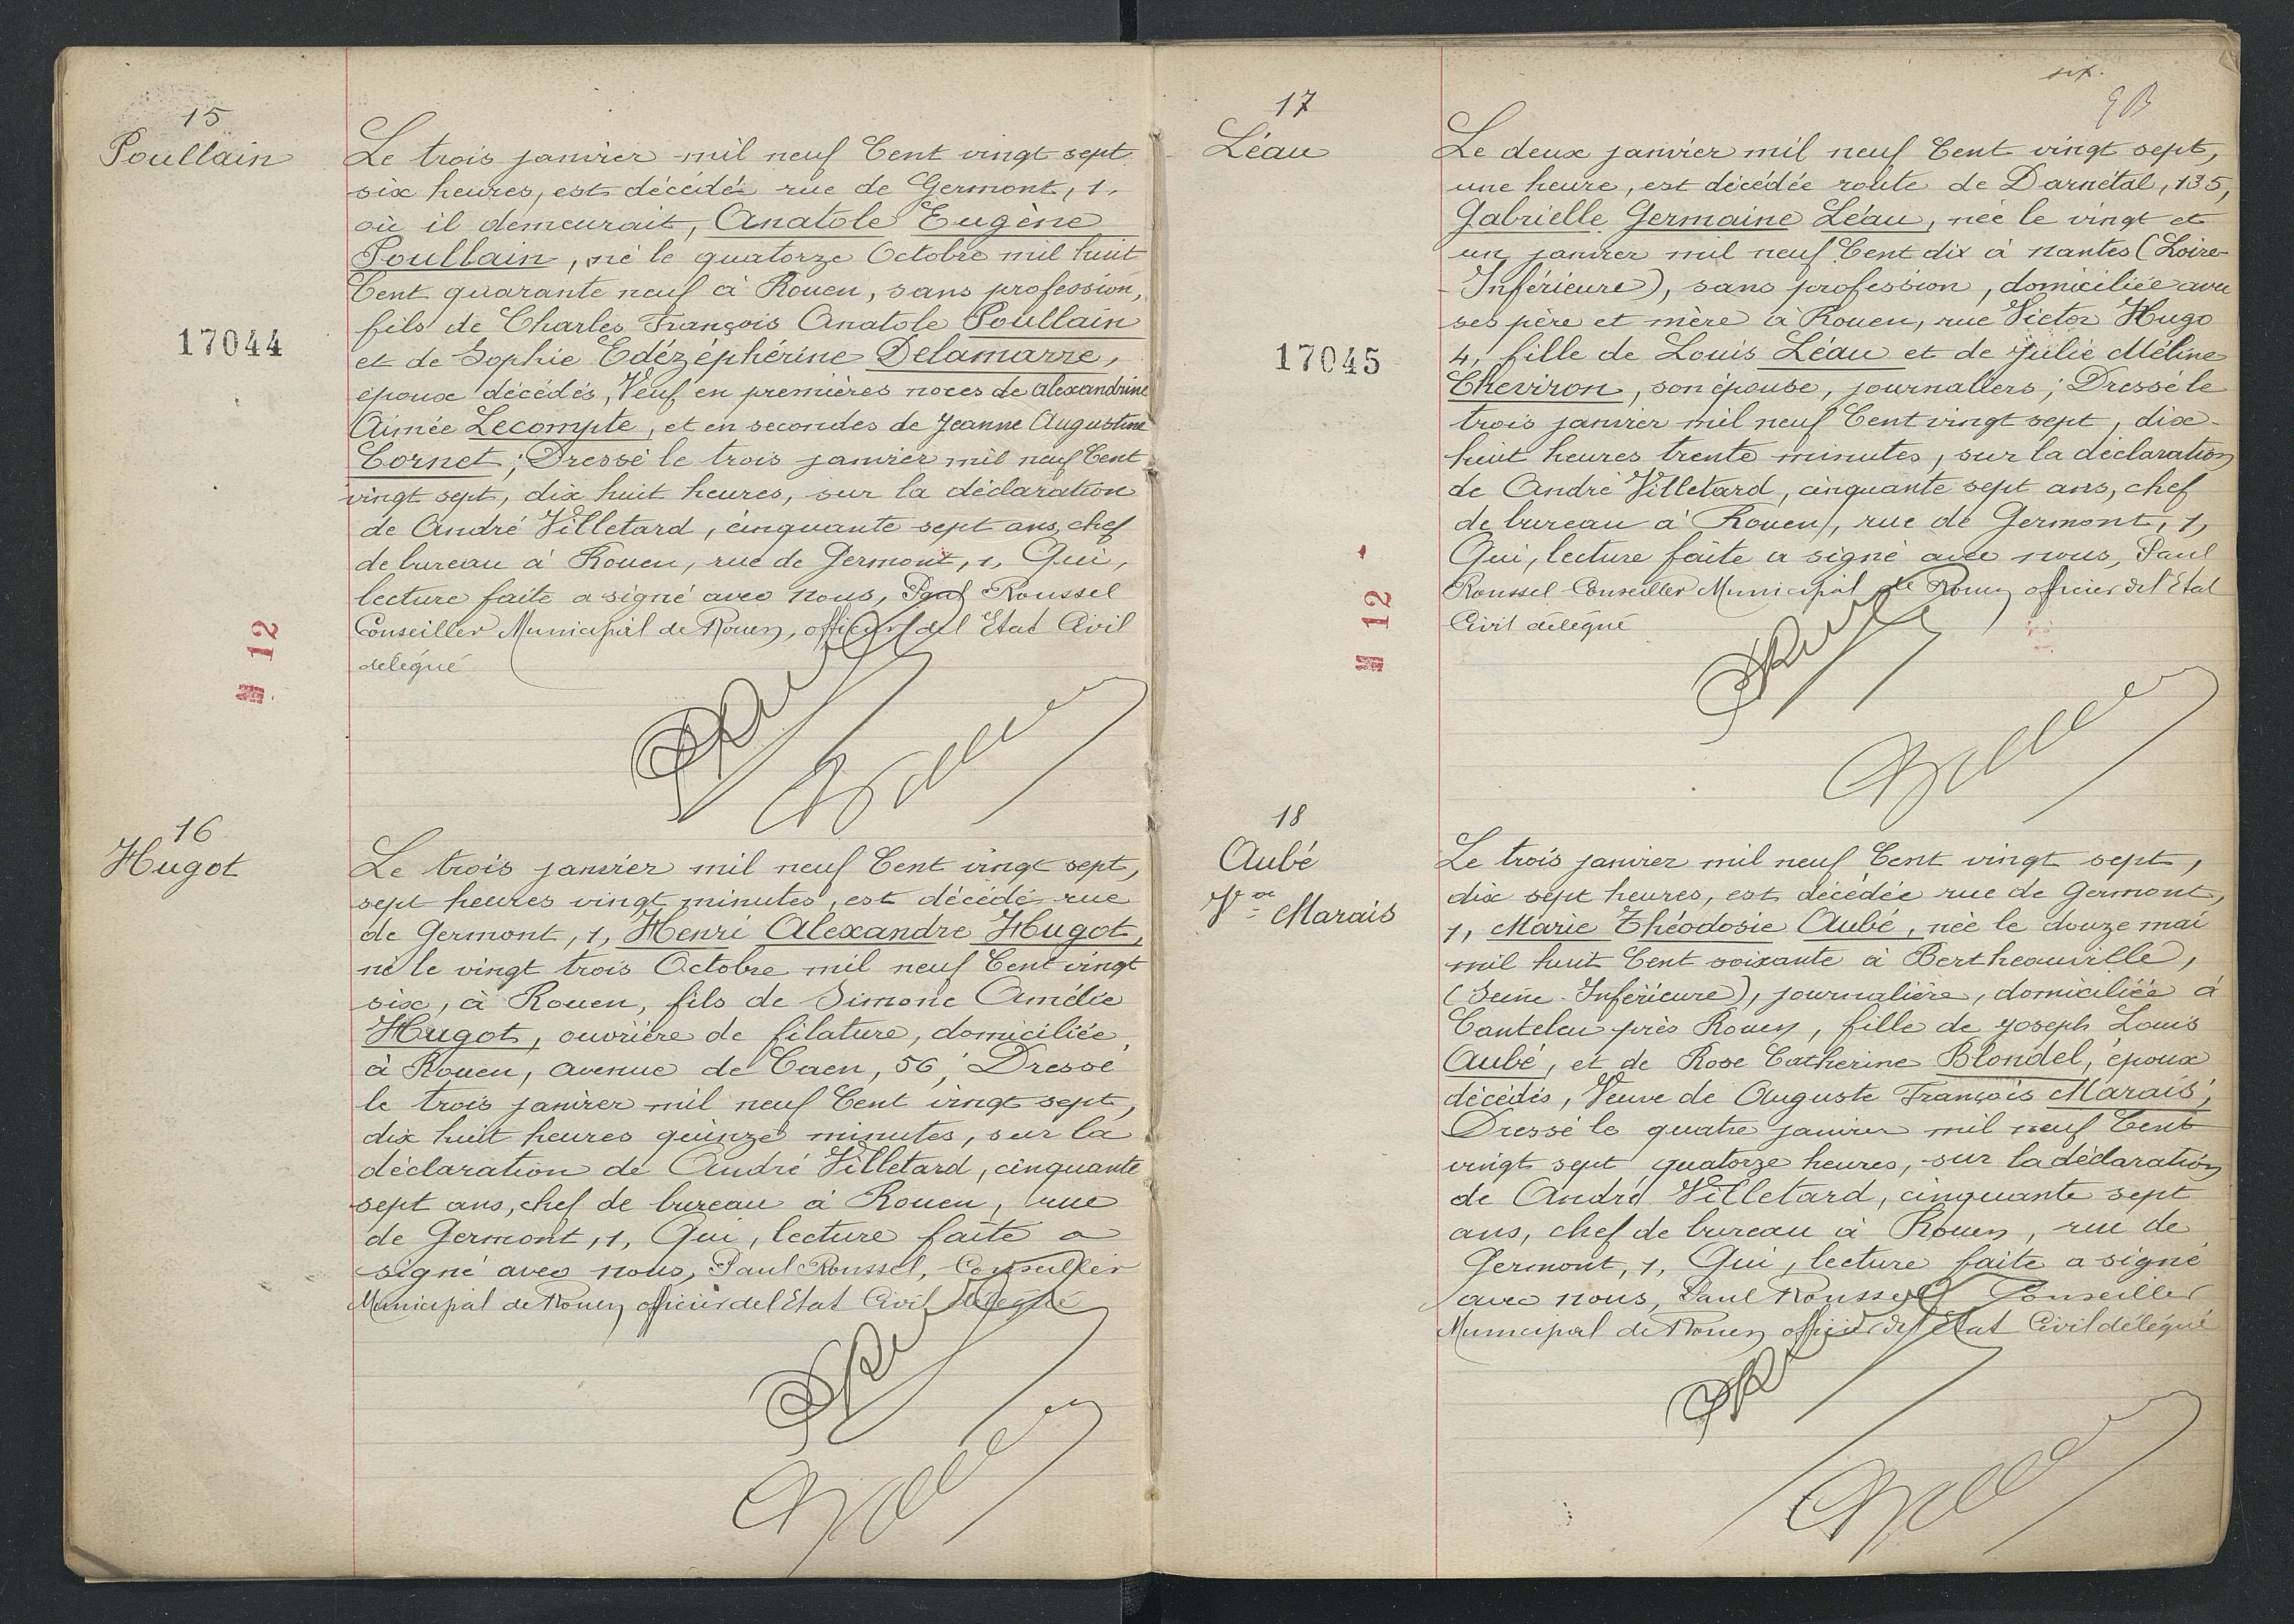 15
Poullain
Le trois janvier mil neuf Cent vingt sept
six heures, est décédé rue de Germont, 1,
où il demeurait, Anatole Eugène
Poullain, né le quatorze Octobre mil huit
Cent quarante neuf à Rouen, sans profession,
fils de Charles François Anatole Poullain
et de Sophie Edézéphérine Delamarre,
époux décédés, Veuf en premières noces de Alexandrine
Aimée Lecompte, et en secondes de Jeanne Augustine
Cornet; Dressé le trois janvier mil neuf Cent
vingt sept, dix huit heures, sur la déclaration
de André Villetard, cinquante sept ans, chef
de bureau à Rouen, rue de Germont, 1, Qui,
lecture faite a signé avec nous, Paul Roussel
Conseiller Municipal de Rouen, officier del Etat Civil
delégué
17044
12
16
Hugot
Le trois janvier mil neuf Cent vingt sept,
sept heures vingt minutes, est décédé rue
de Germont, 1, Henri Alexandre Hugot,
né le vingt trois Octobre mil neuf Cent vingt
six, à Rouen, fils de Simone Amélie
Hugot, ouvrière de filature, domiciliée
à Rouen, avenue de Caen, 56; Dressé
le trois janvier mil neuf Cent vingt sept,
dix huit heures quinze minutes, sur la
déclaration de André Villetard, cinquante
sept ans, chef de bureau à Rouen, rue
de Germont, 1, Qui, lecture faite a
signé avec nous, Paul Roussel, Conseiller
Municipal de Rouen officier del Etat Civil délégué
six.
17
Léau
Le deux janvier mil neuf Cent vingt sept,
une heure, est décédée route de Darnétal, 135,
Gabrielle Germaine Léau, née le vingt et
un janvier mil neuf Cent dix à Nantes (Loire-
Inférieure), sans profession, domiciliée avec
ses père et mère à Rouen, rue Victor Hugo
4, fille de Louis Léau et de Julie Méline
Cheviron, son épouse, journaliers; Dressé le
trois janvier mil neuf Cent vingt sept, dix-
huit heures trente minutes, sur la déclaration
de André Villetard, cinquante sept ans, chef
de bureau à Rouen, rue de Germont, 1,
Qui, lecture faite a signé avec nous, Paul
Roussel Conseiller Municipal de Rouen officier del Etat
Civil délégué
17045
12
18
Aubé
Vve Marais
Le trois janvier mil neuf Cent vingt sept,
dix sept heures, est décédée rue de Germont,
1, Marie Théodosie Aubé, née le douze mai
mil huit Cent soixante à Bertheauville,
(Seine-Inférieure), journalière, domiciliée à
Canteleu près Rouen, fille de Joseph Louis
Aubé, et de Rose Catherine Blondel, époux
décédés, Veuve de Auguste François Marais;
Dressé le quatre janvier mil neuf Cent
vingt sept quatorze heures, sur la déclaration
de André Villetard, cinquante sept
ans, chef de bureau à Rouen, rue de
Germont, 1, Qui, lecture faite a signé
avec nous, Paul Roussel Conseiller
Municipal de Rouen officier del Etat Civil délégué